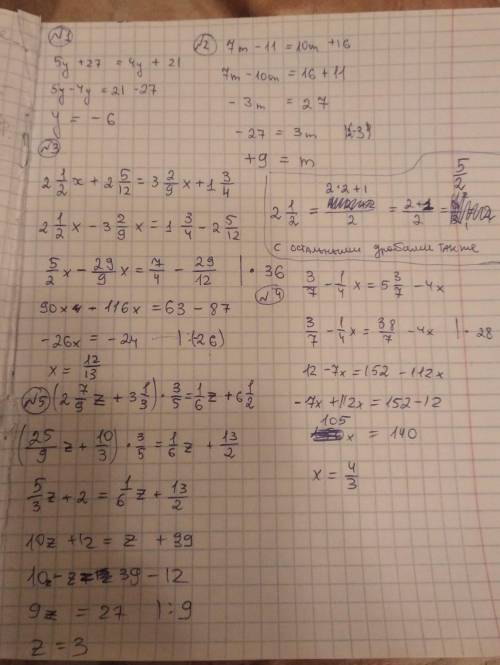 №1
5y + 27 = 4y + 21
5y - 4y = 21 - 27
y = - 6
№2
7m - 11 = 10m + 16
7m - 10m = 16 + 11
- 3m = 27
- 27 = 3m
+9 = m
№3
2 1/2 x + 2 5/12 = 3 2/9 x + 1 3/4
2 1/2 x - 3 2/9 x = 1 3/4 - 2 5/12
5/2 x - 29/9 x = 7/4 - 29/12 | · 36
90x - 116x = 63 - 87
-26x = - 24 | :(-26)
x = 12/13
2 1/2 = 2·2+1/2 = 2+1/2 = 5/2
с остальными дробами также
№4
3/7 - 1/4 x = 5 3/7 - 4x
3/7 - 1/4 x = 38/7 - 4x | · 28
12 - 7x = 152 - 112x
-7x + 112x = 152 - 12
105x = 140
x = 4/3
№5 (2 7/9 z + 3 1/3) · 3/5 = 1/6 z + 6 1/2
(25/9 z + 10/3) · 3/5 = 1/6 z + 13/2
5/3 z + 2 = 1/6 z + 13/2
10z + 12 = z + 39
10z - z = 39 - 12
9z = 27 | : 9
z = 3